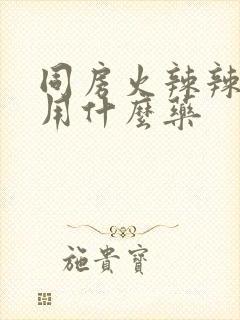 同房火辣辣
用什麼藥
施貴寶